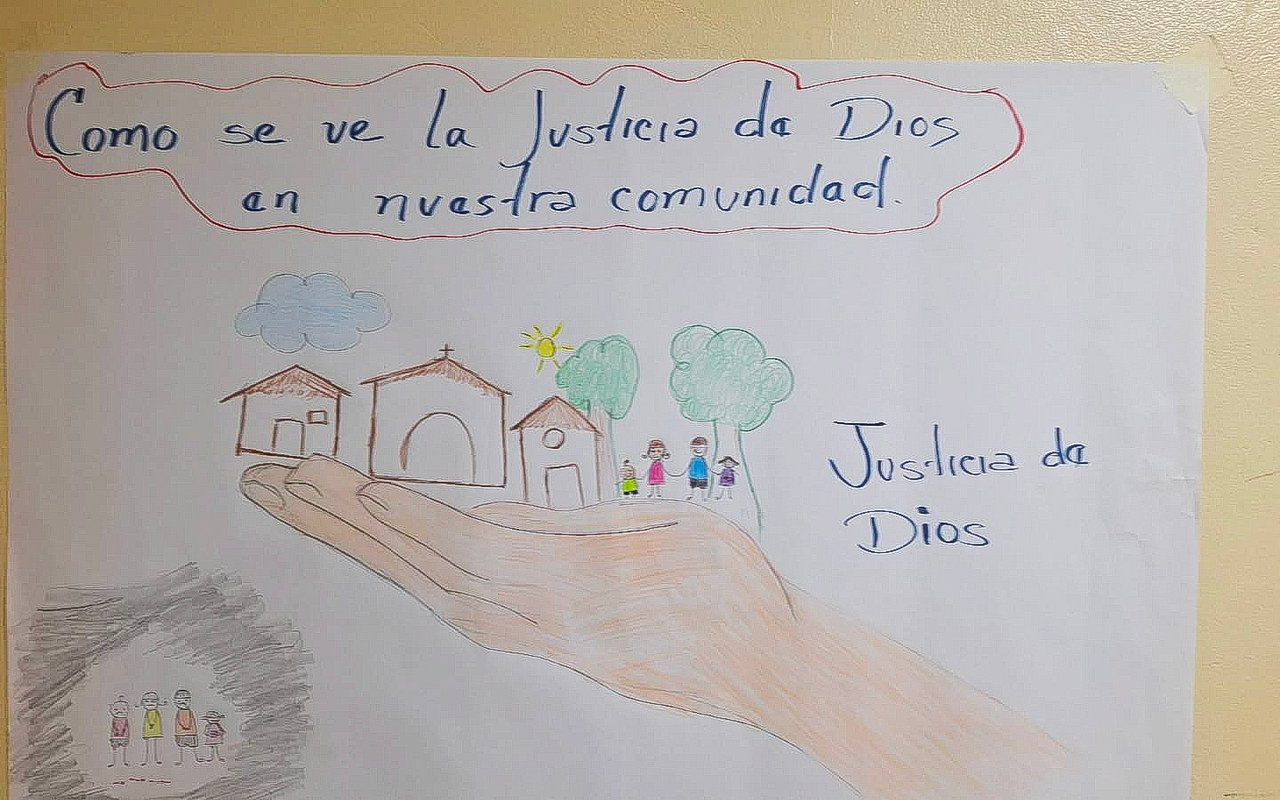 Como se ve la Justicia de Dios
en nuestra comunidad.
Justicia de
Dios